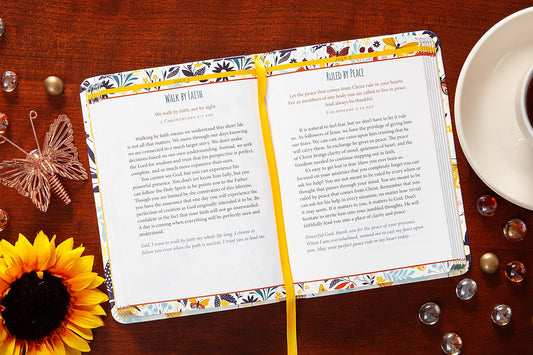 WALK BY FAITH
We walk by faith, not by sight.
2 CORINTHIANS 5:7 ESV
Walking by faith means we understand this short life
is not all that matters. We move through our days knowing
we are connected to a much larger story. We don't make
decisions based on our own understanding. Instead, we seek
the Lord for wisdom and trust that his perspective is perfect,
complete, and so much more expansive than ours.
You cannot see God, but you can experience his
powerful presence. You don't know him fully, but you can
follow the Holy Spirit as he points you to the Father.
Though you are limited by the constraints of this lifetime,
you have the assurance that one day you will experience the
perfection of creation as God originally intended it to be. Be
confident in the fact that your faith will not go unrewarded.
A day is coming when everything will be perfectly seen and
understood.
God, I want to walk by faith my whole life long. I choose to
follow you even when the path is unclear. I trust you to lead me.
RULED BY PEACE
Let the peace that comes from Christ rule in your hearts.
For as members of one body you are called to live in peace.
And always be thankful.
COLOSSIANS 3:15 NLT
It is natural to feel fear, but we don't have to let it rule
us. As followers of Jesus, we have the privilege of giving him
our fears. We can cast our cares upon him trusting that he
will carry them. In exchange he gives us peace. The peace
of Christ brings clarity of mind, quietness of heart, and the
freedom needed to continue stepping out in faith.
It's easy to get lost in fear. Have you ever been so
focused on your anxieties that you completely forget you can
ask for help? You are not meant to be ruled by every whim or
thought that passes through your mind. You are meant to be
ruled by peace that comes from Christ. Remember that you
can ask for his help in every situation, no matter how trivial
it may seem. If it matters to you, it matters to God. Don't
hesitate to invite him into your jumbled thoughts. He will
faithfully lead you into a place of clarity and peace.
Powerful God, thank you for the peace of your presence.
When I am overwhelmed, remind me to come to you and rest
upon you. May your perfect peace rule in my heart today.